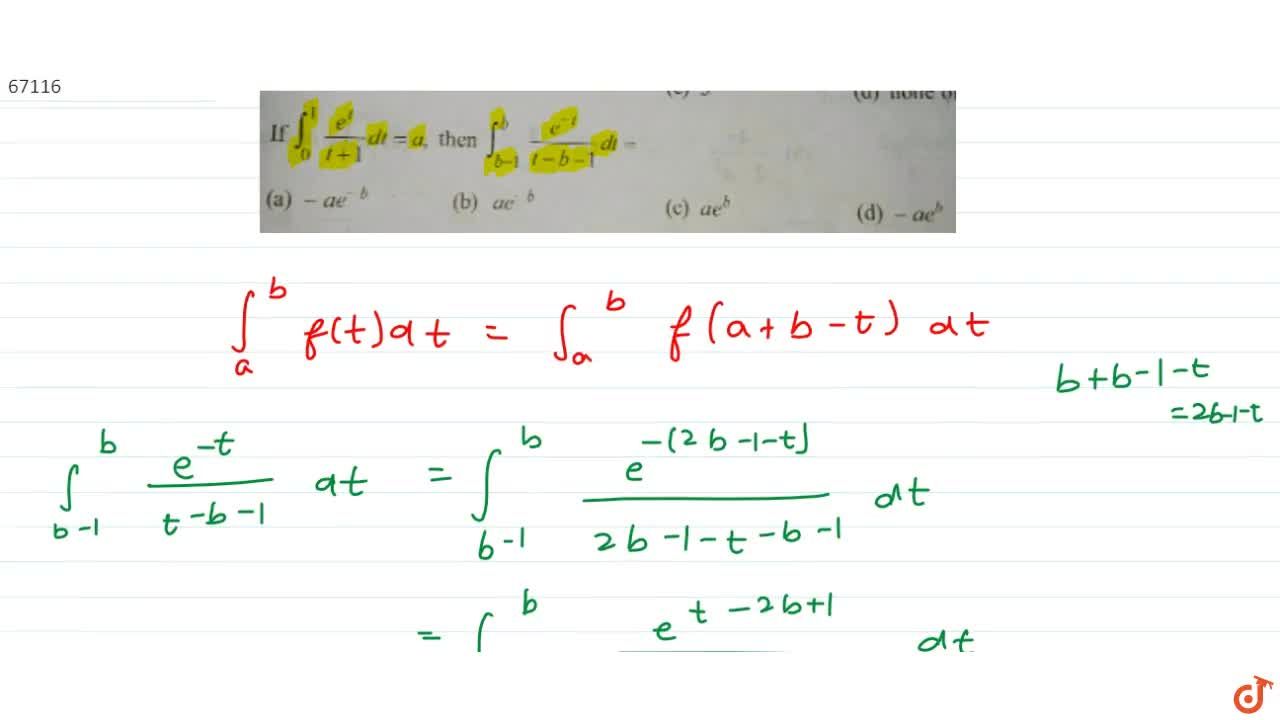 67116
(d) none of
If ∫₀¹ e^t/(t+1) dt = a, then ∫_{b-1}^{b} e^{-t}/(t-b-1) dt =
(a) - ae^{-b} (b) ae^{-b} (c) ae^b (d) - ae^b
∫_a^b f(t) dt = ∫_a^b f(a+b-t) dt
b+b-1-t
=2b-1-t
∫_{b-1}^{b} e^{-t}/(t-b-1) dt = ∫_{b-1}^{b} e^{-(2b-1-t)}/(2b-1-t-b-1) dt
= ∫^b e^{t-2b+1} dt